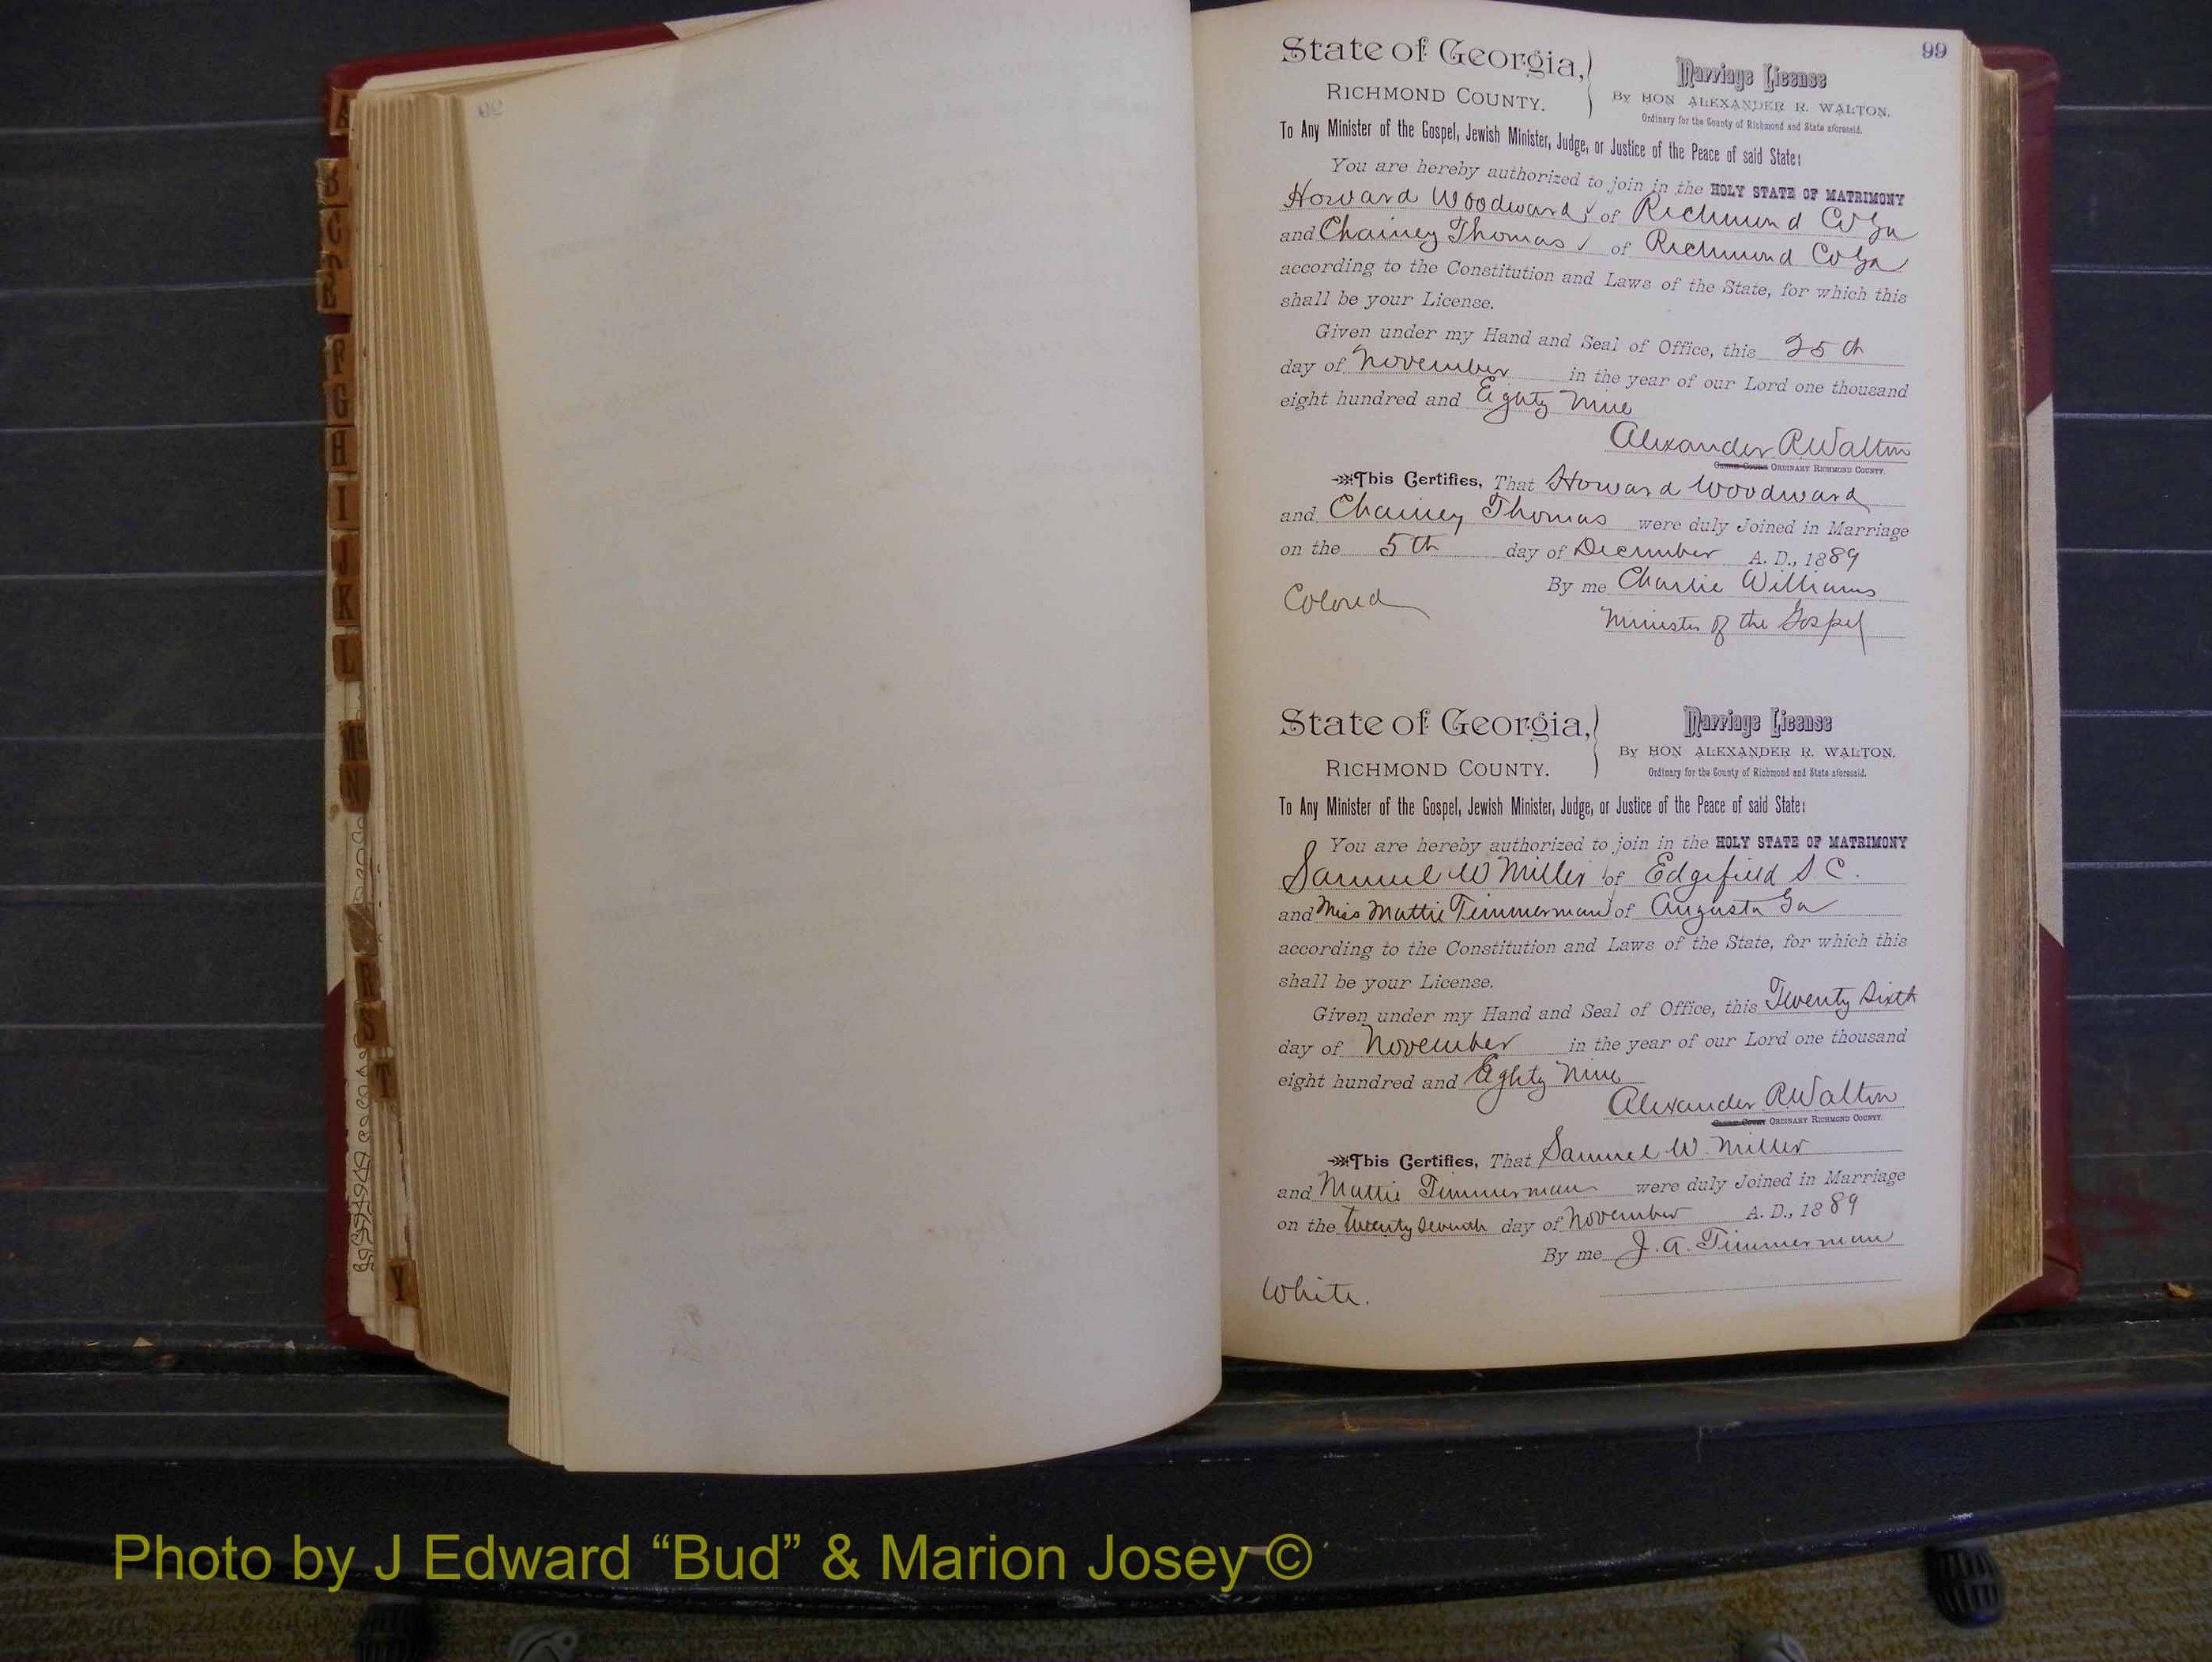 99
State of Georgia,
RICHMOND COUNTY.
Marriage License
By HON ALEXANDER R. WALTON.
Ordinary for the County of Richmond and State aforesaid.
To Any Minister of the Gospel, Jewish Minister, Judge, or Justice of the Peace of said State:
You are hereby authorized to join in the HOLY STATE OF MATRIMONY
Howard Woodward of Richmond Co Ga
and Chainey Thomas of Richmond Co Ga
according to the Constitution and Laws of the State, for which this
shall be your License.
Given under my Hand and Seal of Office, this 25th
day of November in the year of our Lord one thousand
eight hundred and Eighty Nine
Alexander R Walton
ORDINARY RICHMOND COUNTY.
This Certifies, That Howard Woodward
and Chainey Thomas were duly Joined in Marriage
on the 5th day of December A. D., 1889
By me Charlie Williams
Colored
Minister of the Gospel
State of Georgia,
RICHMOND COUNTY.
Marriage License
By HON ALEXANDER R. WALTON.
Ordinary for the County of Richmond and State aforesaid.
To Any Minister of the Gospel, Jewish Minister, Judge, or Justice of the Peace of said State:
You are hereby authorized to join in the HOLY STATE OF MATRIMONY
Samuel W Miller of Edgefield S C.
and Miss Mattie Timmerman of Augusta Ga
according to the Constitution and Laws of the State, for which this
shall be your License.
Given under my Hand and Seal of Office, this Twenty Sixth
day of November in the year of our Lord one thousand
eight hundred and Eighty Nine
Alexander R Walton
ORDINARY RICHMOND COUNTY.
This Certifies, That Samuel W. Miller
and Mattie Timmerman were duly Joined in Marriage
on the twenty seventh day of November A. D., 1889
By me J. A. Timmerman
White.
B
C
F
G
H
I
J
K
L
M
N
R
S
T
Y
Photo by J Edward “Bud” & Marion Josey ©